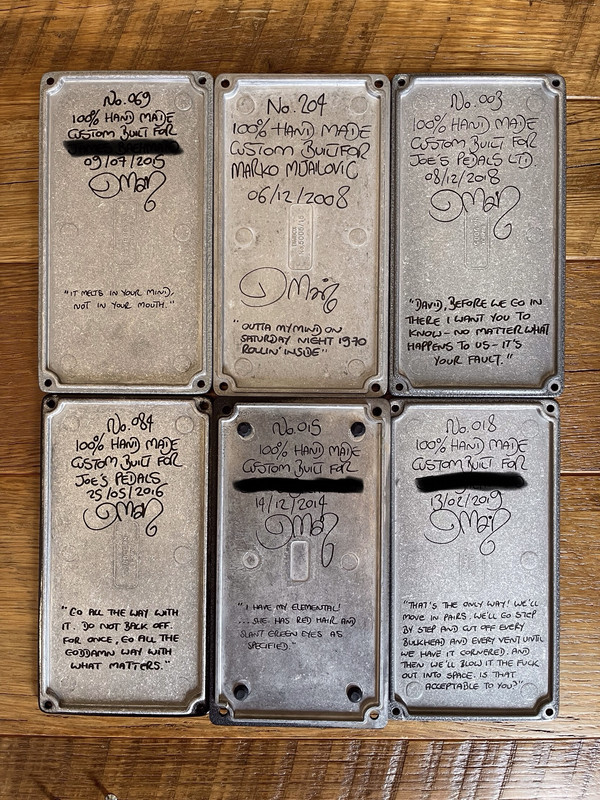 No. 069
100% HAND MADE
CUSTOM BUILT FOR
09/07/2015
"IT MELTS IN YOUR MIND,
NOT IN YOUR MOUTH."
No. 204
100% HAND MADE
CUSTOM BUILT FOR
MARKO MIJAILOVIĆ
06/12/2008
"OUTTA MY MIND ON
SATURDAY NIGHT 1970
ROLLIN' INSIDE"
No. 003
100% HAND MADE
CUSTOM BUILT FOR
JOE'S PEDALS LTD.
08/12/2018
"DAVID, BEFORE WE GO IN
THERE I WANT YOU TO
KNOW - NO MATTER WHAT
HAPPENS TO US - IT'S
YOUR FAULT."
No. 084
100% HAND MADE
CUSTOM BUILT FOR
JOE'S PEDALS
25/05/2016
"GO ALL THE WAY WITH
IT. DO NOT BACK OFF.
FOR ONCE, GO ALL THE
GODDAMN WAY WITH
WHAT MATTERS."
No. 015
100% HAND MADE
CUSTOM BUILT FOR
14/12/2014
"I HAVE MY ELEMENTAL!
...SHE HAS RED HAIR AND
SLANT GREEN EYES AS
SPECIFIED."
No. 018
100% HAND MADE
CUSTOM BUILT FOR
13/02/2019
"THAT'S THE ONLY WAY! WE'LL
MOVE IN PAIRS. WE'LL GO STEP
BY STEP AND CUT OFF EVERY
BULKHEAD AND EVERY VENT UNTIL
WE HAVE IT CORNERED. AND
THEN WE'LL BLOW IT THE FUCK
OUT INTO SPACE. IS THAT
ACCEPTABLE TO YOU?"